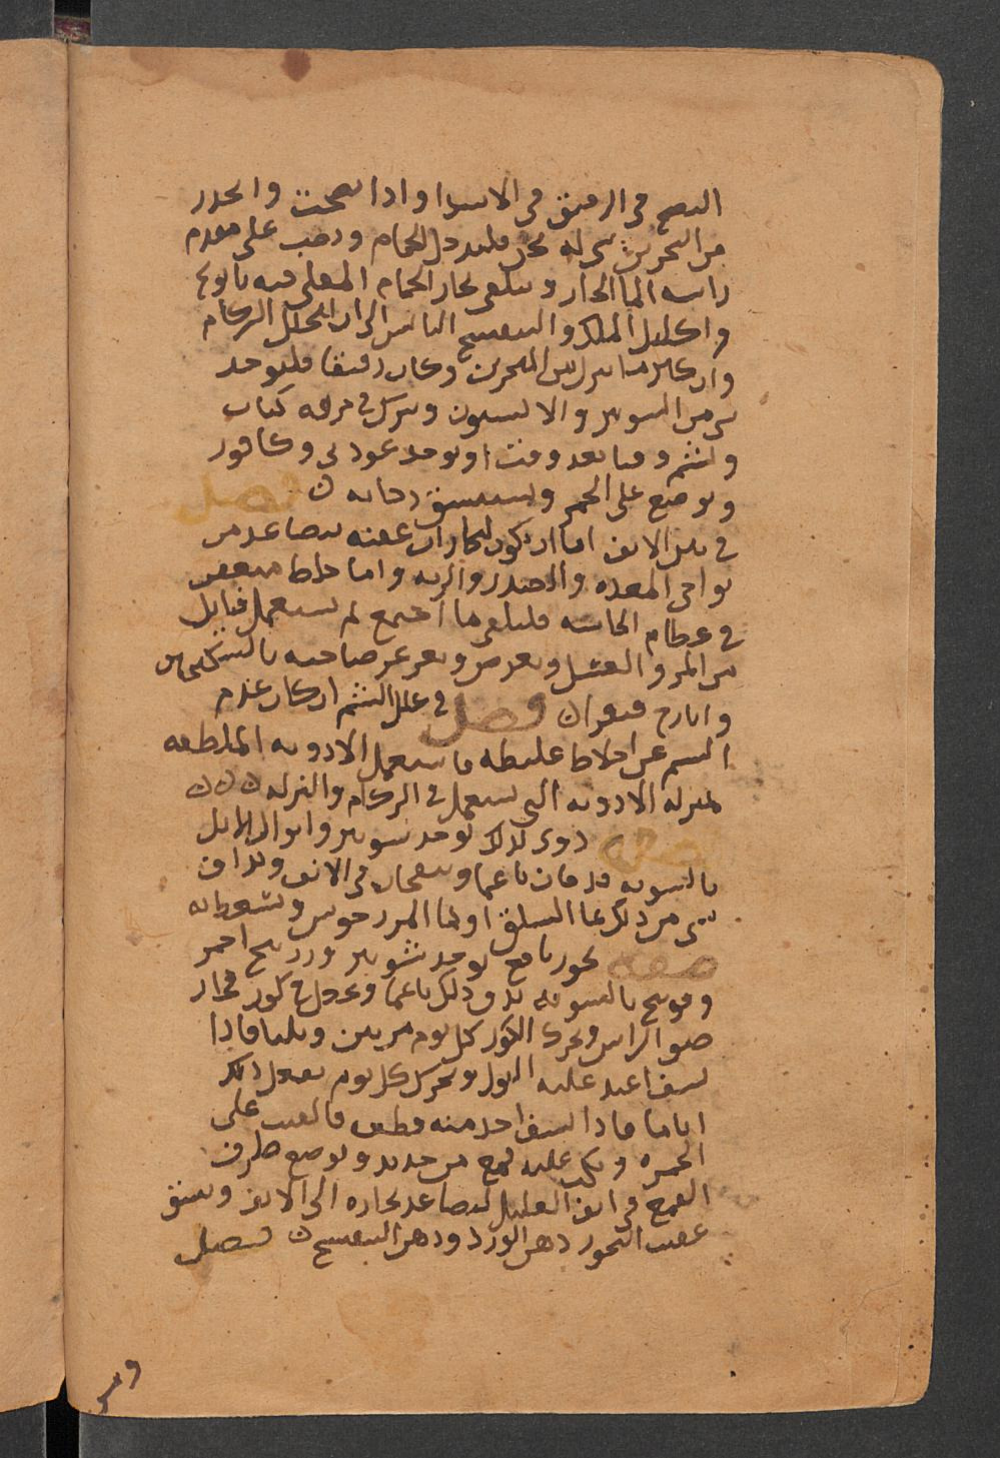 النضج في الرقيق في الابتدا واذا نضجت وانحدر
من المنخرين شي له ثخن فليدخل الحمام ويصب على مقدم
راسه الما الحار ويتلقى بخار الحمام المغلى فيه بابونج
واكليل الملك والبنفسج اليابس الى ان ينحلل الزكام
وان كان ما ينزل من المنخرين وكان رقيقا فليوخذ
شي من الشونيز والانيسون ويترك في خرقه كتان
ويشم وقتا بعد وقت او يوخذ عود ني وكافور
ويوضع على الجمر ويستنشق دخانه ن فصل
في نتن الانف اما ان يكون لبخارات عفنه تتصاعد من
نواحي المعده والصدر والريه واما خلط متعفن
في عظام الحاسه فليلقى ما اجتمع ثم يستعمل فتايل
من المر والعسل ويغرغر صاحبه بالسكنجبين
وايارج فيقرا ن فصل في علل الشم ان كان عدم
الشم عن اخلاط غليظه فاستعمل الادويه الملطفه
بمنزله الادويه التي تستعمل في الزكام والنزله ن ن ن
صفه دوى لذلك يوخذ شونيز وابوال الابل
بالسويه يدقان ناعما وينفخان في الانف ويداف
شي من ذلك بما السلق او بما المرزجوش ويسعط به
صفه بخور نافع يوخذ شونيز وزرنيخ احمر
وفوتنج بالسويه يدق ذلك ناعما ويجعل في كوز فخار
ضيق الراس ويحرك الكوز كل يوم مرتين وثلثا فاذا
نشف اعيد عليه البول ويحرك كل يوم يفعل ذلك
اياما فاذا نشف اخذ منه قطعه فالقيت على
الجمره وكب عليه قمع من حديد ويوضع طرف
القمع في انف العليل ليتصاعد بخاره الى الانف وينشق
عقيب البخور دهن الورد ودهن البنفسج ن فصل